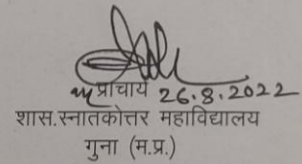 प्राचार्य 26.8.2022
शास.स्नातकोत्तर महाविद्यालय
गुना (म.प्र.)